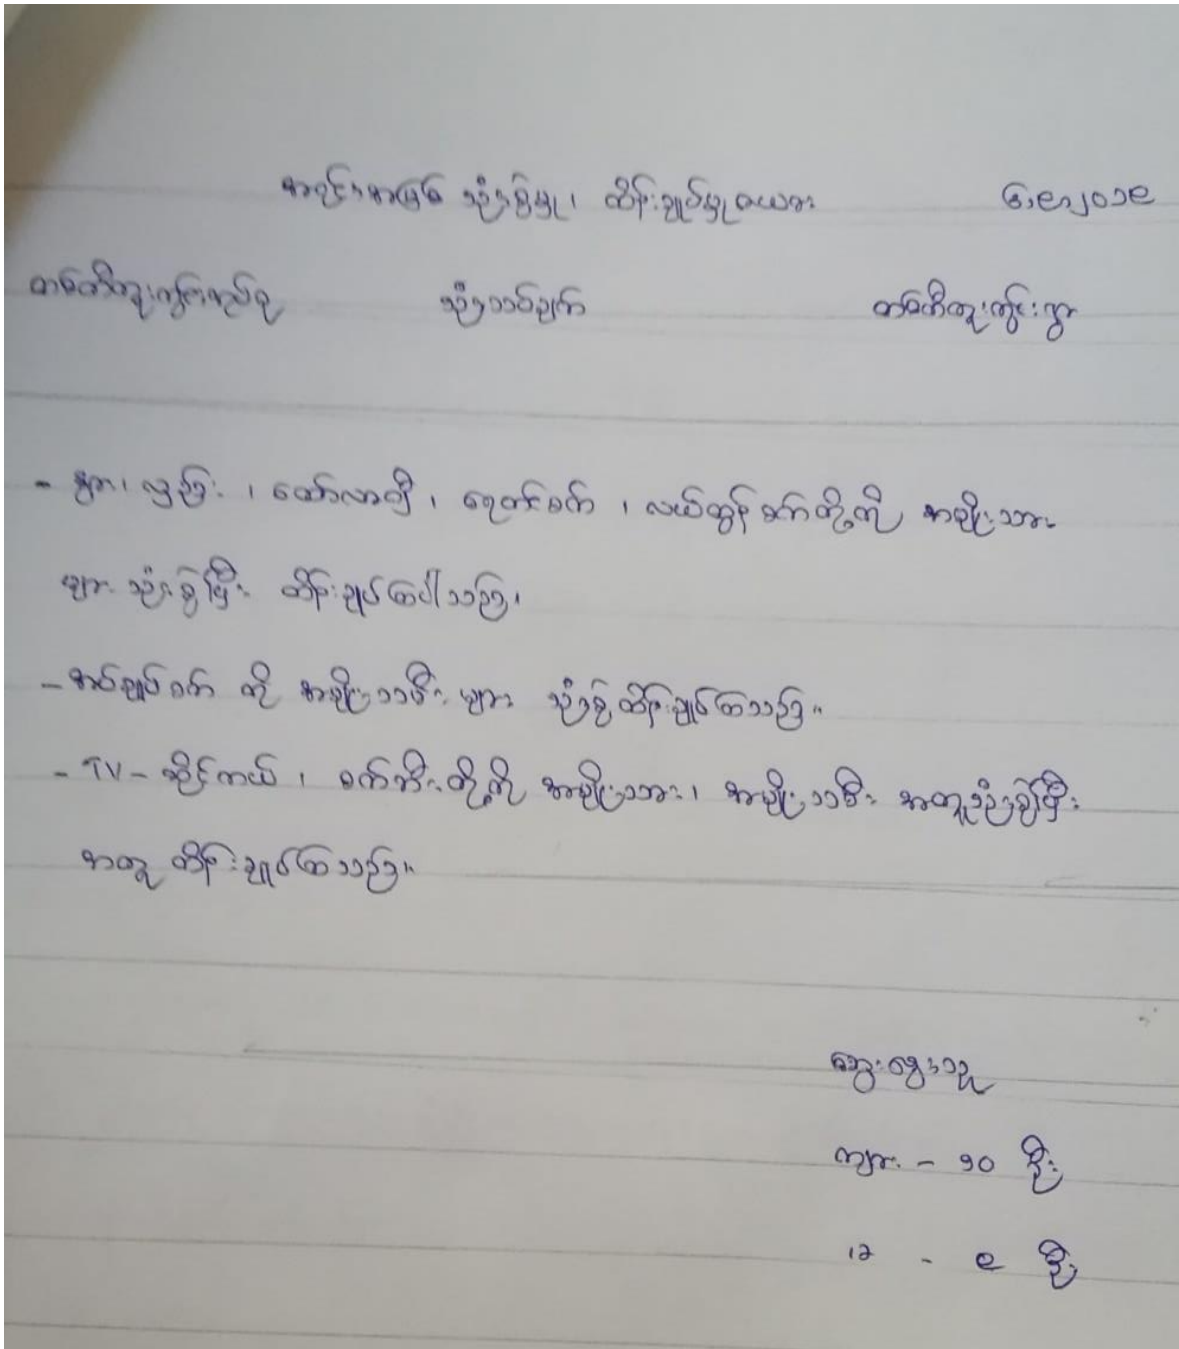 အရင်းအမြစ် သုံးစွဲမှု၊ ထိန်းချုပ်မှုဇယား
တစ်တီတူးကွင်းအုပ်စု သုံးသပ်ချက် တစ်တီတူးကွင်းရွာ
- နွား၊ လှည်း ၊ ထော်လာဂျီ ၊ ရေတင်စက် ၊ လယ်ထွန်စက်တို့ကို အမျိုးသား
များ သုံးစွဲပြီး ထိန်းချုပ်ကြပါသည်၊
- အပ်ချုပ်စက် ကို အမျိုးသမီး များ သုံးစွဲထိန်းချုပ်ကြသည်။
- TV - ဆိုင်ကယ် ၊ စက်ဘီးတို့ကို အမျိုးသား၊ အမျိုးသမီး အတူသုံးစွဲပြီး
အတူ ထိန်းချုပ်ကြသည်။
ဆွေးနွေးသူ
ကျား - ၁၀ ဦး
၊မ - ၉ ဦး